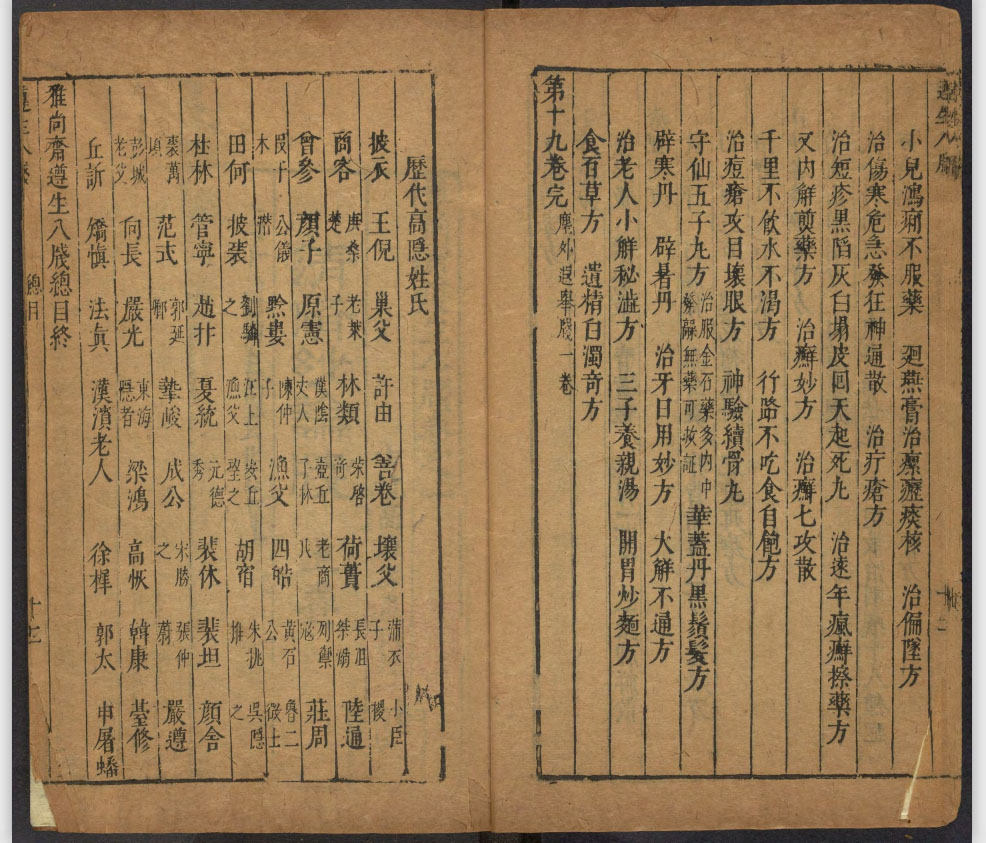 小兒鴻痢不服藥 廻燕膏治瘰癧痰核 治偏墜方
治傷寒危急發狂神通散 治疔瘡方
治短疹黑䧟灰白塌皮囘天起死九 治遠年瘋癬搽藥方
又内解煎藥方 治癬妙方 治癬七攻散
千里不飲水不渴方 行路不吃食自飽方
治痘瘡攻目壞眼方 神驗續骨九
守仙五子九方 治服金石藥多内中發躁無藥可救証 華蓋丹黑鬚髮方
辟寒丹 辟暑丹 治牙日用妙方 大解不通方
治老人小解秘澁方 三子養親湯 開胃炒麵方
食百草方 遺精白濁奇方
第十九卷完 塵外遐舉牋一卷
歷代高隱姓氏
披衣 王倪 巢父 許由 善卷 壤父 蒲衣子 小臣稷
商容 庚桑楚 老萊子 林類 荣啓竒 荷蕢 長沮桀溺 陸通
曾參 顔子 原憲 漢陰丈人 壺丘子林 老商氏 列禦寇 莊周
段干木 公儀潛 黔婁 陳仲子 漁父 四皓 黃石公 魯二徵士
田何 披裘 劉驎之 江上漁父 安丘望之 胡宿 朱桃椎 吳隱之
杜林 管寧 趙抃 夏統 元德秀 裴休 裴坦 顔含
裘萬頃 范式 郭延卿 摯峻 成公 宋勝之 張仲蔚 嚴遵
彭城老父 向長 嚴光 東海隱者 梁鴻 高恢 韓康 臺修
丘訢 矯愼 法眞 漢濱老人 徐穉 郭太 申屠蟠
雅尚齋遵生八牋總目終
總目
十二